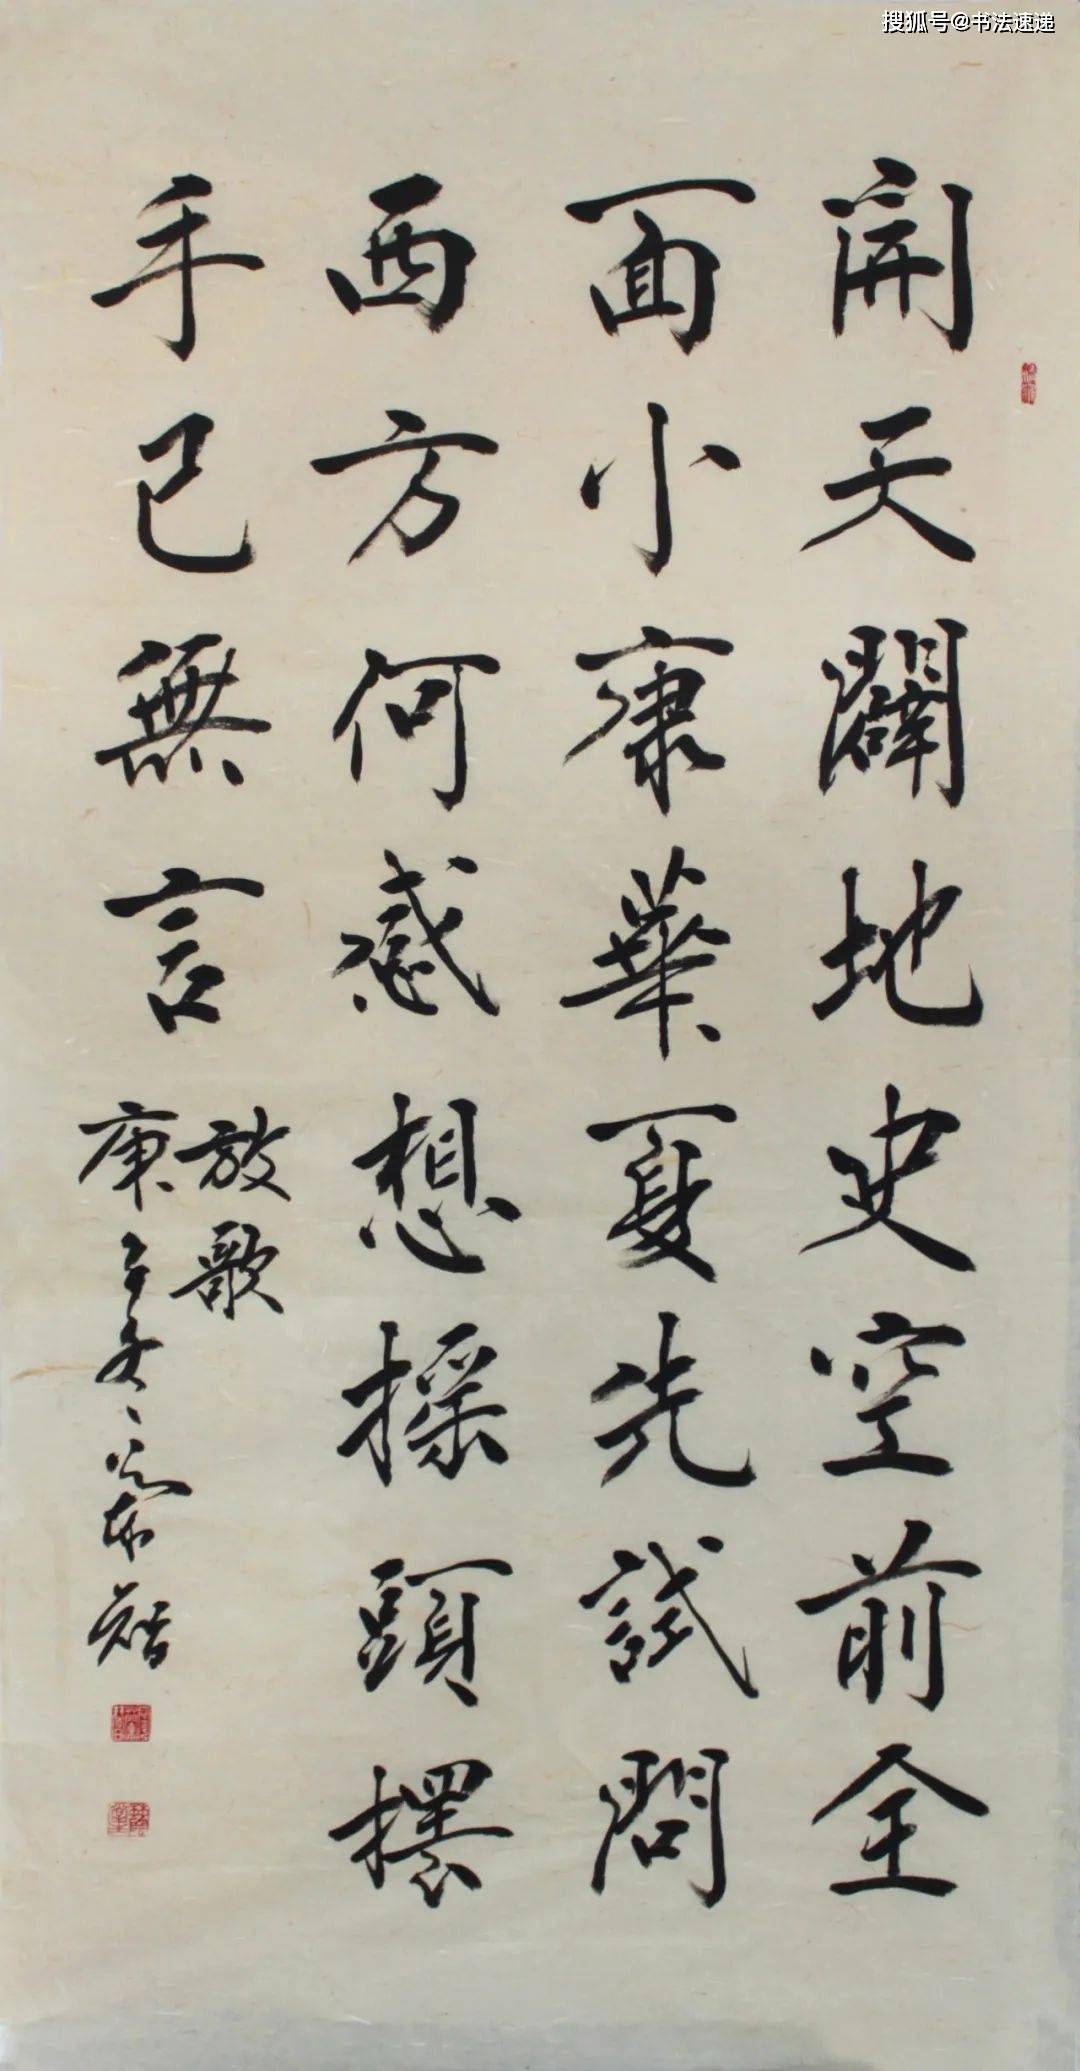 搜狐号@书法速递
開天闢地史空前全
面小康華夏先試問
西方何感想摇頭擺
手已無言
放歌
庚子冬